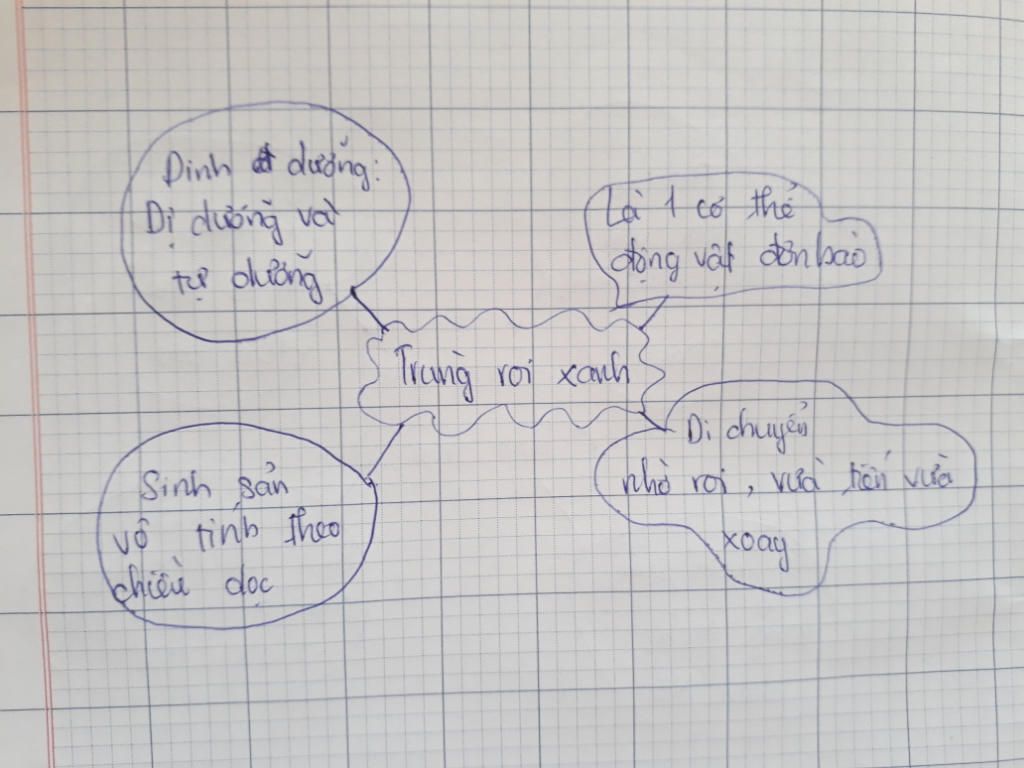 Dinh dưỡng:
Dị dưỡng và
tự dưỡng
Là 1 cơ thể
động vật đơn bào
Trùng roi xanh
Di chuyển
nhờ roi, vừa tiến vừa
xoay
Sinh sản
vô tính theo
chiều dọc